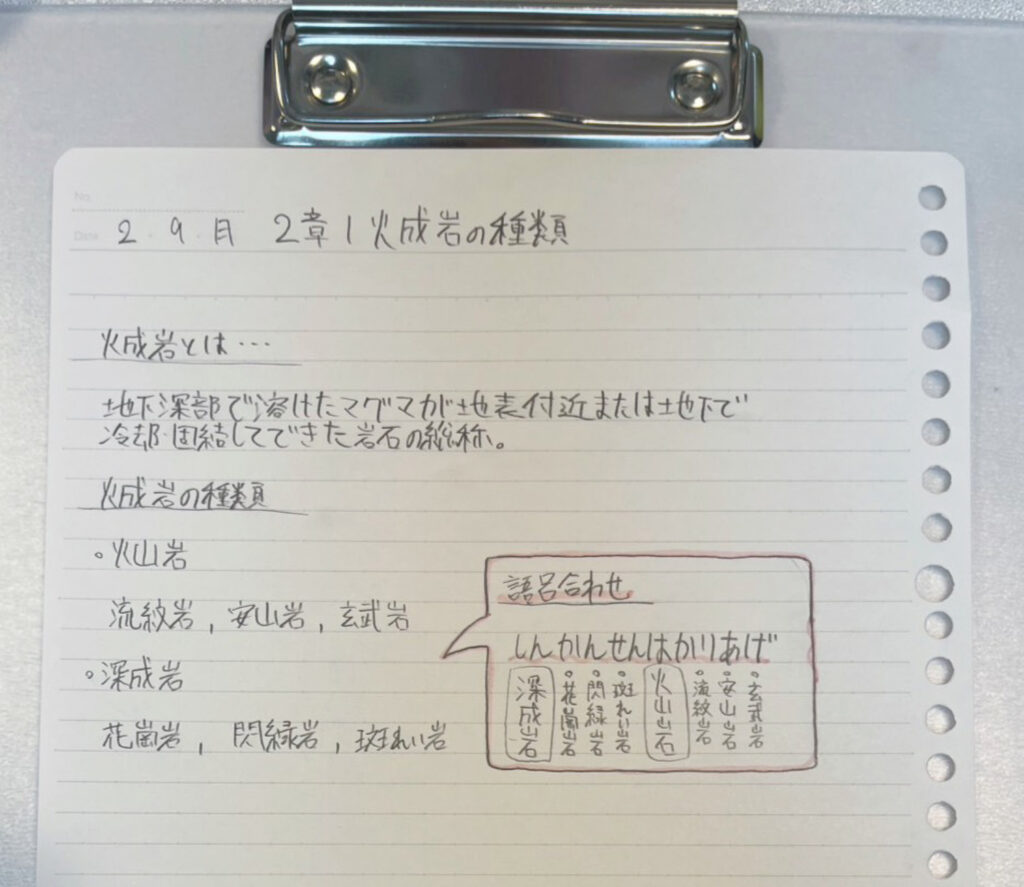 No.
Date 2・9・月 2章1火成岩の種類
火成岩とは…
地下深部で溶けたマグマが地表付近または地下で
冷却・固結してできた岩石の総称。
火成岩の種類
・火山岩
流紋岩,安山岩,玄武岩
・深成岩
花崗岩,閃緑岩,斑れい岩
語呂合わせ
しんかんせんはかりあげ
深成岩
・花崗岩
・閃緑岩
・斑れい岩
火山岩
・流紋岩
・安山岩
・玄武岩